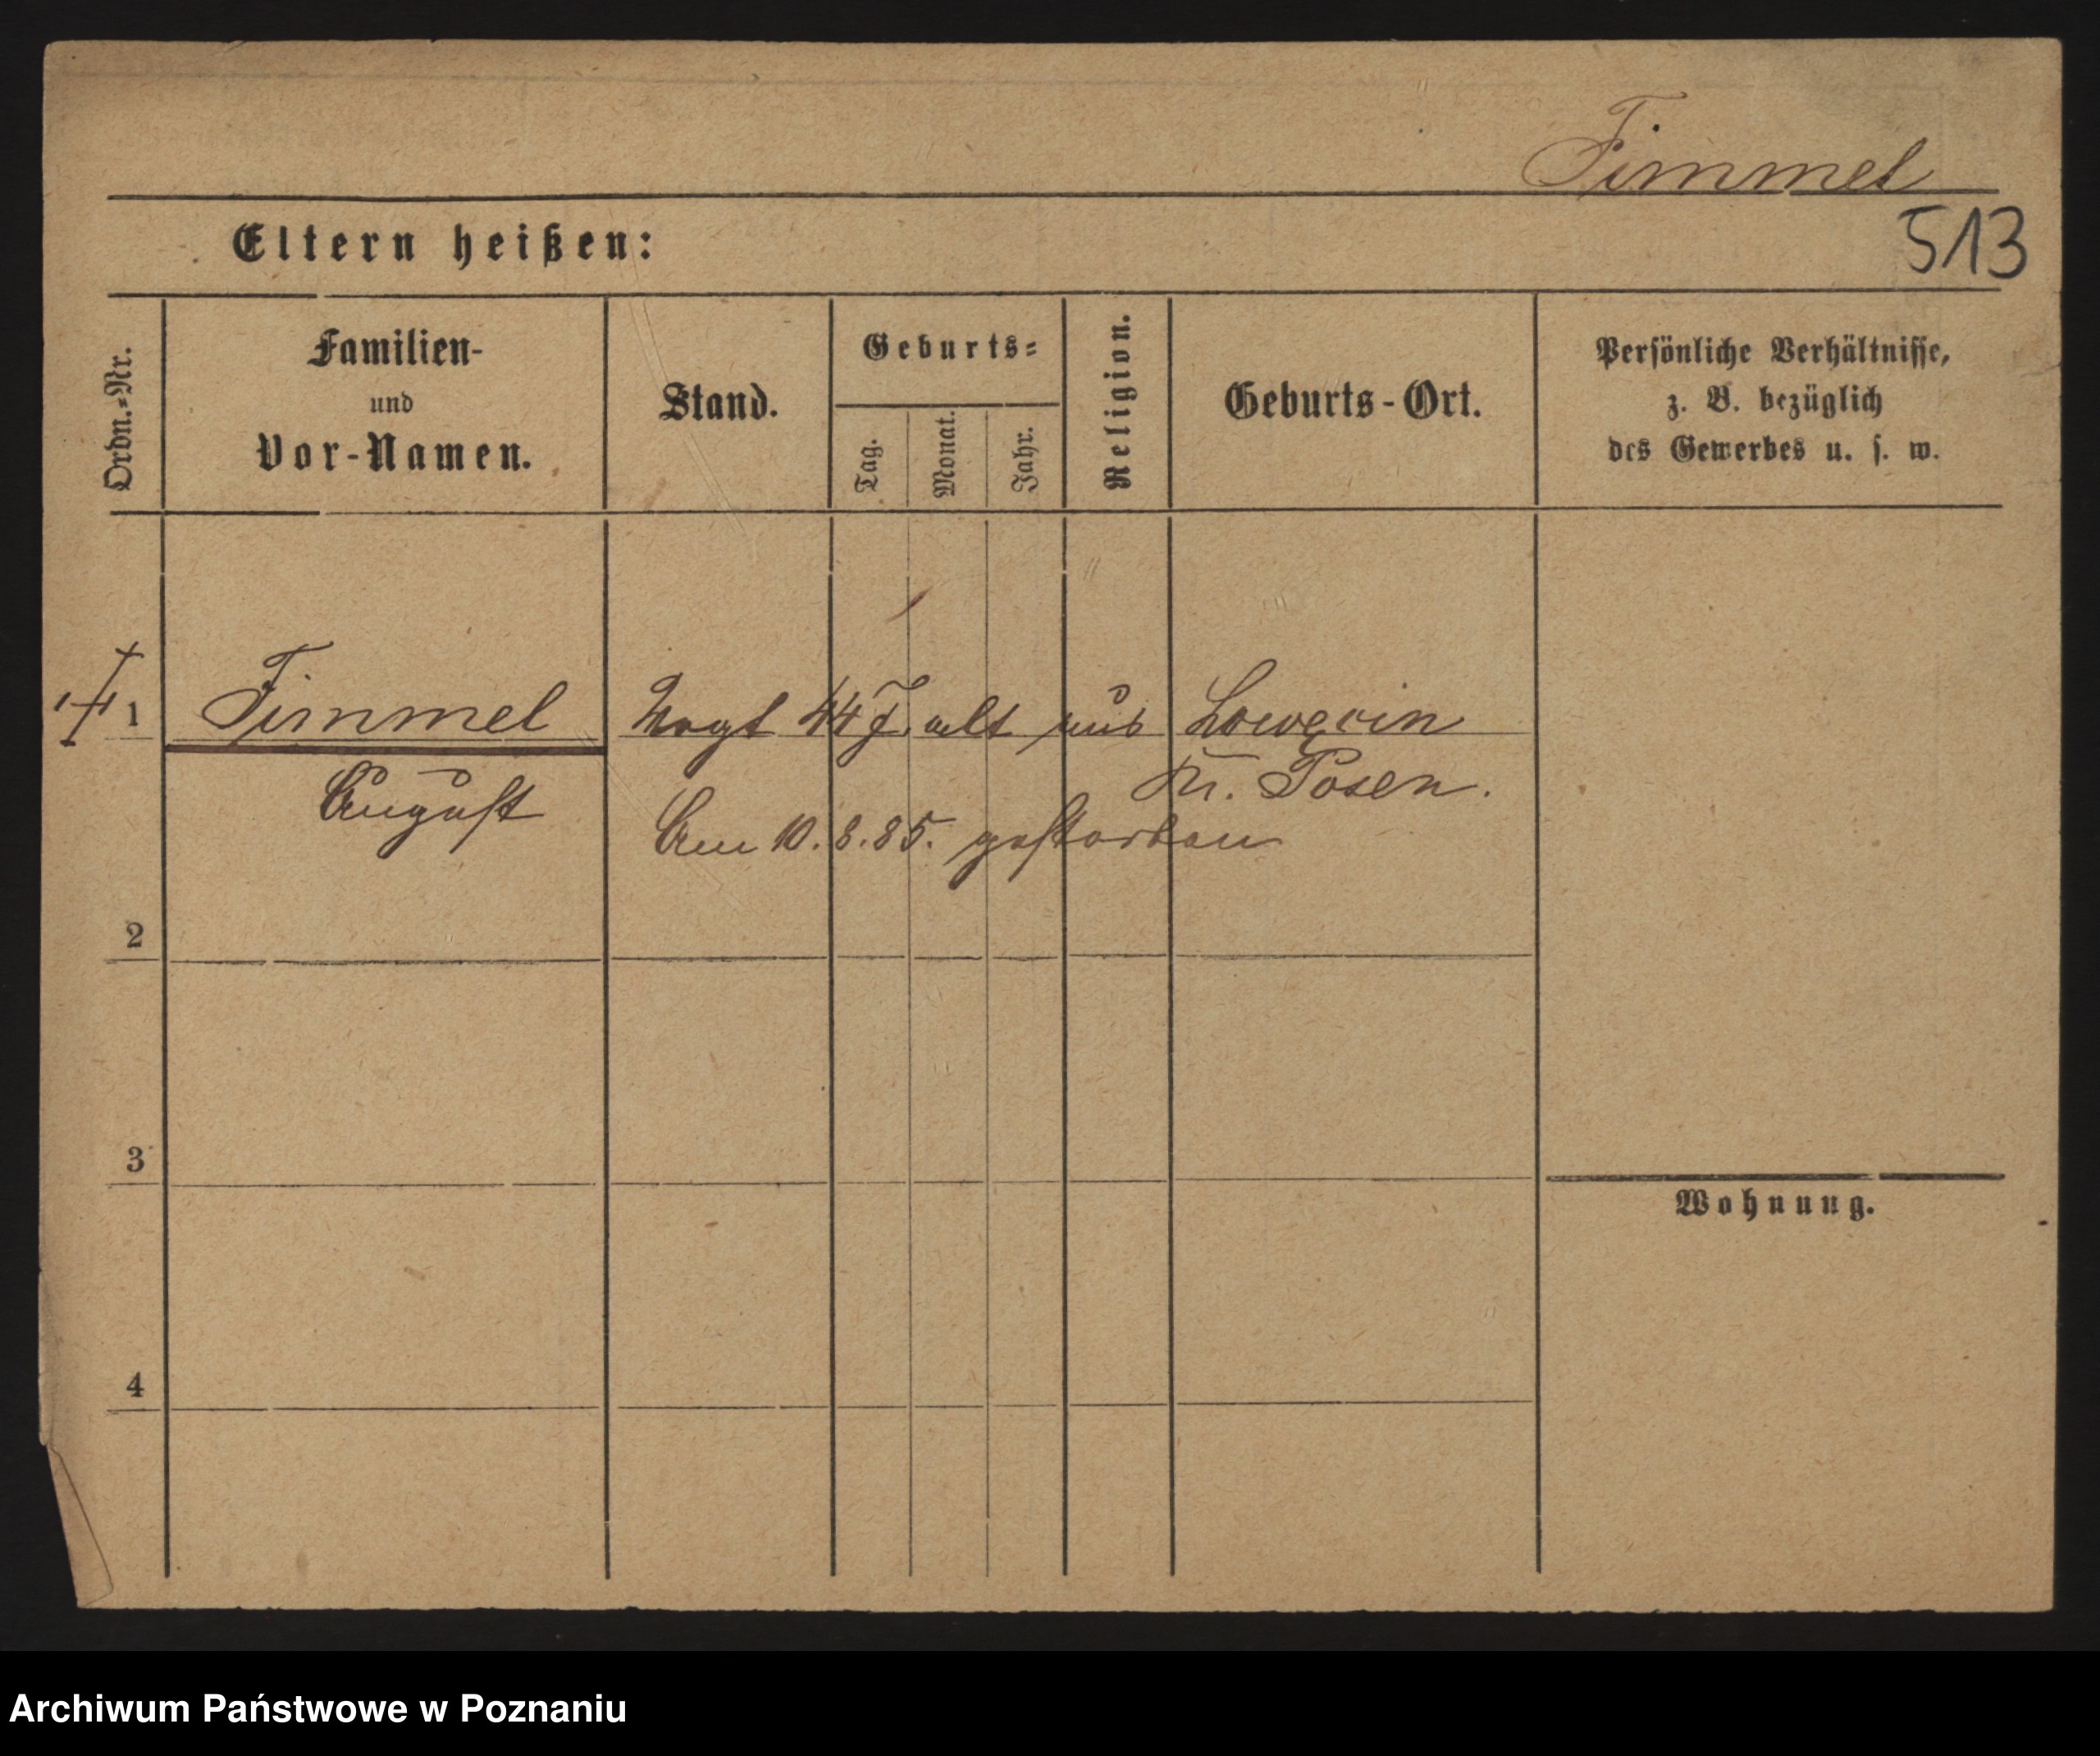 Timmel
513
Eltern heißen:
Ordn.-Nr.
Familien-
und
Vor-Namen.
Stand.
Geburts-
Tag.
Monat.
Jahr.
Religion.
Geburts-Ort.
Persönliche Verhältnisse,
z. B. bezüglich
des Gewerbes u. s. w.
1 Timmel Vogt 44 J. alt aus Lowęcin
Kr. Posen.
August
Am 10.8.85. gestorben
2
3
Wohnung.
4
Archiwum Państwowe w Poznaniu